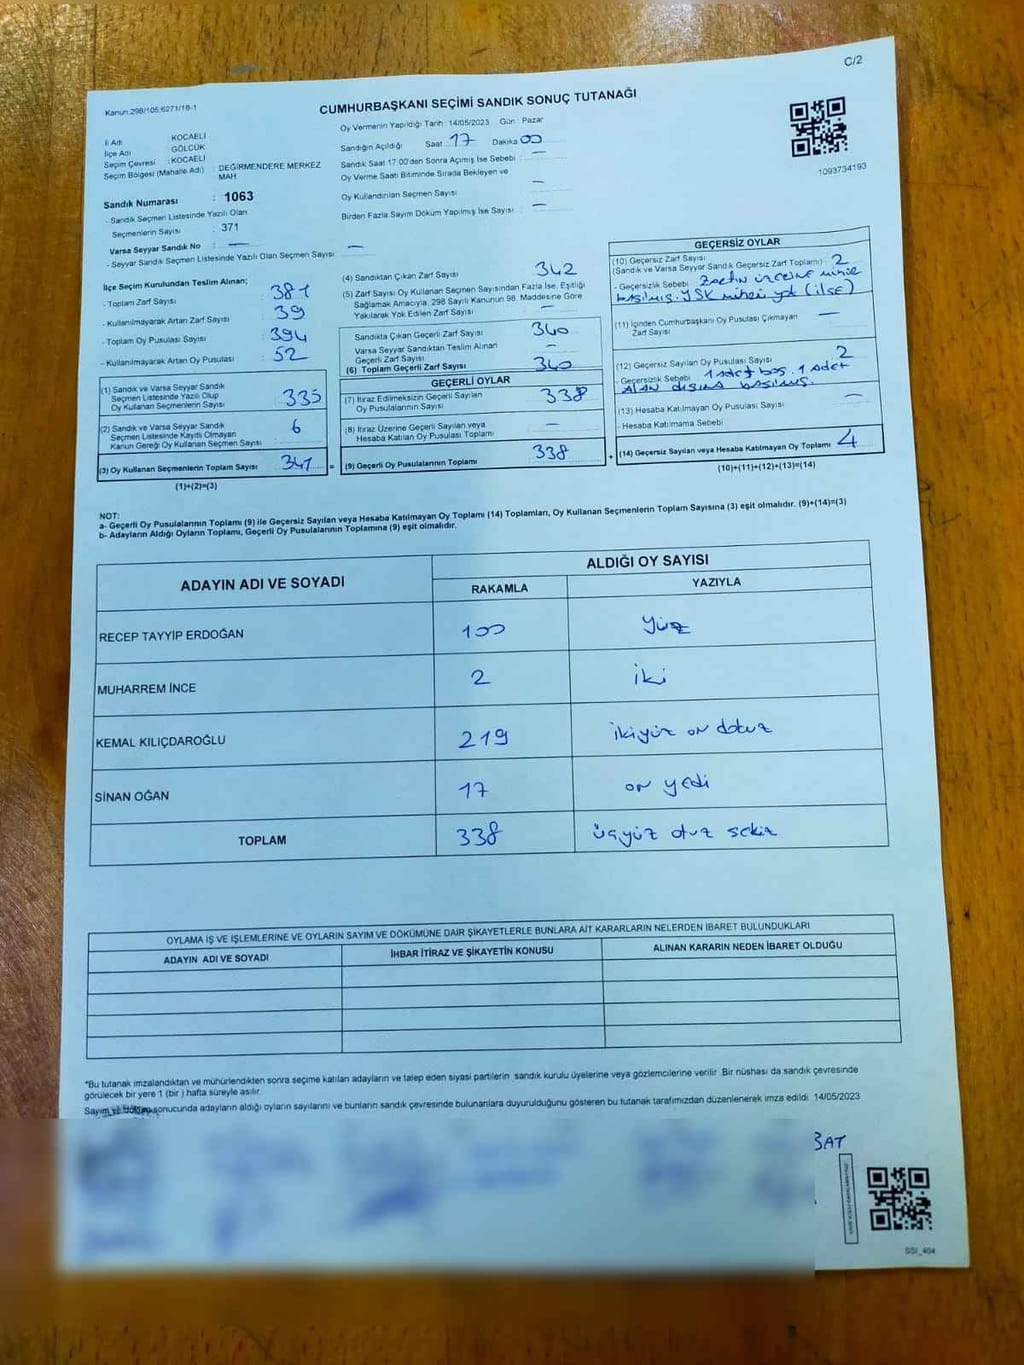 C/2
Kanun:298/105;6271/18-1
CUMHURBAŞKANI SEÇİMİ SANDIK SONUÇ TUTANAĞI
1093734193
İl Adı : KOCAELİ
İlçe Adı : GÖLCÜK
Seçim Çevresi : KOCAELİ
Seçim Bölgesi (Mahalle Adı) : DEĞİRMENDERE MERKEZ MAH.
Sandık Numarası : 1063
- Sandık Seçmen Listesinde Yazılı Olan
Seçmenlerin Sayısı : 371
Varsa Seyyar Sandık No : —
- Seyyar Sandık Seçmen Listesinde Yazılı Olan Seçmen Sayısı: —
Oy Vermenin Yapıldığı Tarih :14/05/2023 Gün : Pazar
Sandığın Açıldığı Saat :17 Dakika:00
Sandık Saat 17:00'den Sonra Açımış İse Sebebi : —
Oy Verme Saati Bitiminde Sırada Bekleyen ve
Oy Kullandırılan Seçmen Sayısı : —
Birden Fazla Sayım Döküm Yapılmış İse Sayısı : —
İlçe Seçim Kurulundan Teslim Alınan;
- Toplam Zarf Sayısı : 381
- Kullanılmayarak Artan Zarf Sayısı : 39
- Toplam Oy Pusulası Sayısı : 394
- Kullanılmayarak Artan Oy Pusulası : 52
(1) Sandık ve Varsa Seyyar Sandık
Seçmen Listesinde Yazılı Olup
Oy Kullanan Seçmenlerin Sayısı : 335
(2) Sandık ve Varsa Seyyar Sandık
Seçmen Listesinde Kayıtlı Olmayan
Kanun Gereği Oy Kullanan Seçmen Sayısı : 6
(3) Oy Kullanan Seçmenlerin Toplam Sayısı : 341 =
(1)+(2)=(3)
(4) Sandıktan Çıkan Zarf Sayısı : 342
(5) Zarf Sayısı Oy Kullanan Seçmen Sayısından Fazla İse, Eşitliği
Sağlamak Amacıyla; 298 Sayılı Kanunun 98. Maddesine Göre
Yakılarak Yok Edilen Zarf Sayısı : —
Sandıkta Çıkan Geçerli Zarf Sayısı : 340
Varsa Seyyar Sandıktan Teslim Alınan
Geçerli Zarf Sayısı : —
(6) Toplam Geçerli Zarf Sayısı : 340
GEÇERLİ OYLAR
(7) İtiraz Edilmeksizin Geçerli Sayılan
Oy Pusulalarının Sayısı : 338
(8) İtiraz Üzerine Geçerli Sayılan veya
Hesaba Katılan Oy Pusulası Toplamı : —
(9) Geçerli Oy Pusulalarının Toplamı : 338 +
GEÇERSİZ OYLAR
(10) Geçersiz Zarf Sayısı
(Sandık ve Varsa Seyyar Sandık Geçersiz Zarf Toplamı) : 2
- Geçersizlik Sebebi : Zarfın üzerine mühür
basılmış. YSK mührü yok (İLÇE)
(11) İçinden Cumhurbaşkanı Oy Pusulası Çıkmayan
Zarf Sayısı : —
(12) Geçersiz Sayılan Oy Pusulası Sayısı : 2
- Geçersizlik Sebebi : 1 adet boş. 1 adet
alan dışına basılmış.
(13) Hesaba Katılmayan Oy Pusulası Sayısı : —
- Hesaba Katılmama Sebebi :
(14) Geçersiz Sayılan veya Hesaba Katılmayan Oy Toplamı : 4
(10)+(11)+(12)+(13)=(14)
NOT:
a- Geçerli Oy Pusulalarının Toplamı (9) ile Geçersiz Sayılan veya Hesaba Katılmayan Oy Toplamı (14) Toplamları, Oy Kullanan Seçmenlerin Toplam Sayısına (3) eşit olmalıdır. (9)+(14)=(3)
b- Adayların Aldığı Oyların Toplamı, Geçerli Oy Pusulalarının Toplamına (9) eşit olmalıdır.
ADAYIN ADI VE SOYADI ALDIĞI OY SAYISI
RAKAMLA YAZIYLA
RECEP TAYYİP ERDOĞAN 100 Yüz
MUHARREM İNCE 2 iki
KEMAL KILIÇDAROĞLU 219 ikiyüz on dokuz
SİNAN OĞAN 17 on yedi
TOPLAM 338 üçyüz otuz sekiz
OYLAMA İŞ VE İŞLEMLERİNE VE OYLARIN SAYIM VE DÖKÜMÜNE DAİR ŞİKAYETLERLE BUNLARA AİT KARARLARIN NELERDEN İBARET BULUNDUKLARI
ADAYIN ADI VE SOYADI İHBAR İTİRAZ VE ŞİKAYETİN KONUSU ALINAN KARARIN NEDEN İBARET OLDUĞU
*Bu tutanak imzalandıktan ve mühürlendikten sonra seçime katılan adayların ve talep eden siyasi partilerin sandık kurulu üyelerine veya gözlemcilerine verilir. Bir nüshası da sandık çevresinde
görülecek bir yere 1 (bir ) hafta süreyle asılır.
Sayım ve döküm sonucunda adayların aldığı oyların sayılarını ve bunların sandık çevresinde bulunanlara duyurulduğunu gösteren bu tutanak tarafımızdan düzenlenerek imza edildi. 14/05/2023
BAT
SSI_404